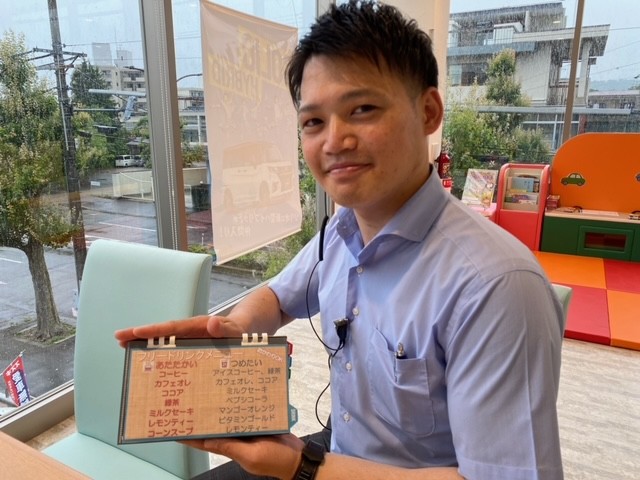 フリードリンクメニュー
あたたかい
コーヒー
カフェオレ
ココア
緑茶
ミルクセーキ
レモンティー
コーンスープ
つめたい
アイスコーヒー、緑茶
カフェオレ、ココア
ミルクセーキ
ペプシコーラ
マンゴーオレンジ
ビタミンゴールド
レモンティー